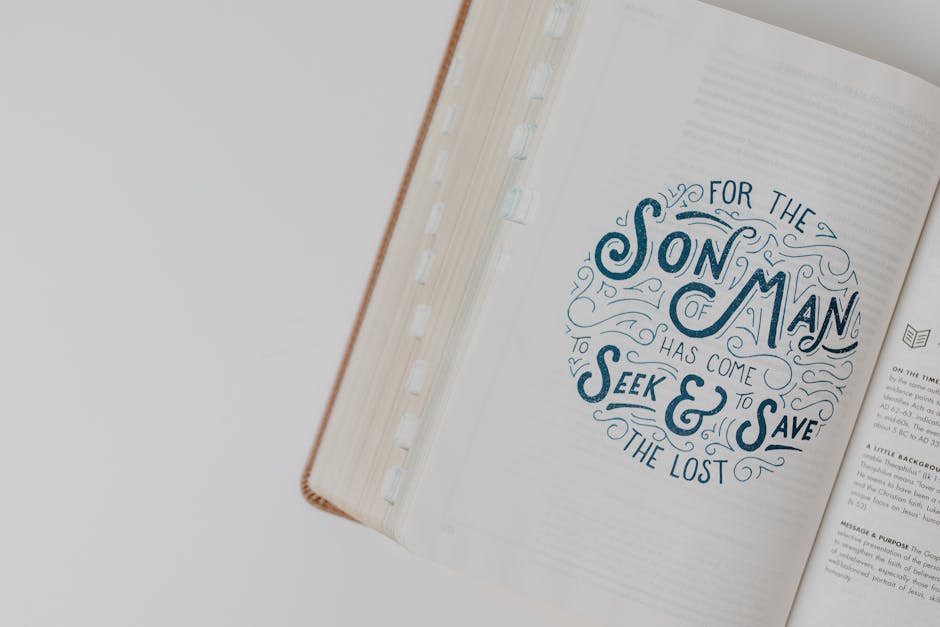 FOR THE
SON
OF MAN
HAS COME
TO SEEK & TO SAVE
THE LOST
ON THE TIME
by the same auth
evidence points t
identifies Acts as
AD 62–63, indicat
to mid-60s. The eve
about 5 BC to AD 33
A LITTLE BACKGROU
orable Theophilus" (Lk 1
Theophilus means "lover
He seems to have been a
and the Christian faith. Luke
unique focus on Jesus' huma
(Is 53).
MESSAGE & PURPOSE The Gosp
selective presentation of the perso
to strengthen the faith of believers
of unbelievers, especially those fro
well-balanced portrait of Jesus, skil
humanity.